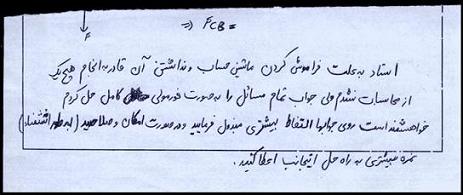 F
=> FCB =
استاد به علت فراموشی کردن ماشین حساب و نداشتن آن قادر به انجام هیچ یک
از محاسبات نشدم ولی جواب تمام مسائل را به صورت فرمولی کامل حل کردم
خواهشمند است روی جوابها التفاط بیشتری مبذول فرمایید و در صورت امکان و صلاحدید
نمره بیشتری به راه حل اینجانب اعطا کنید.